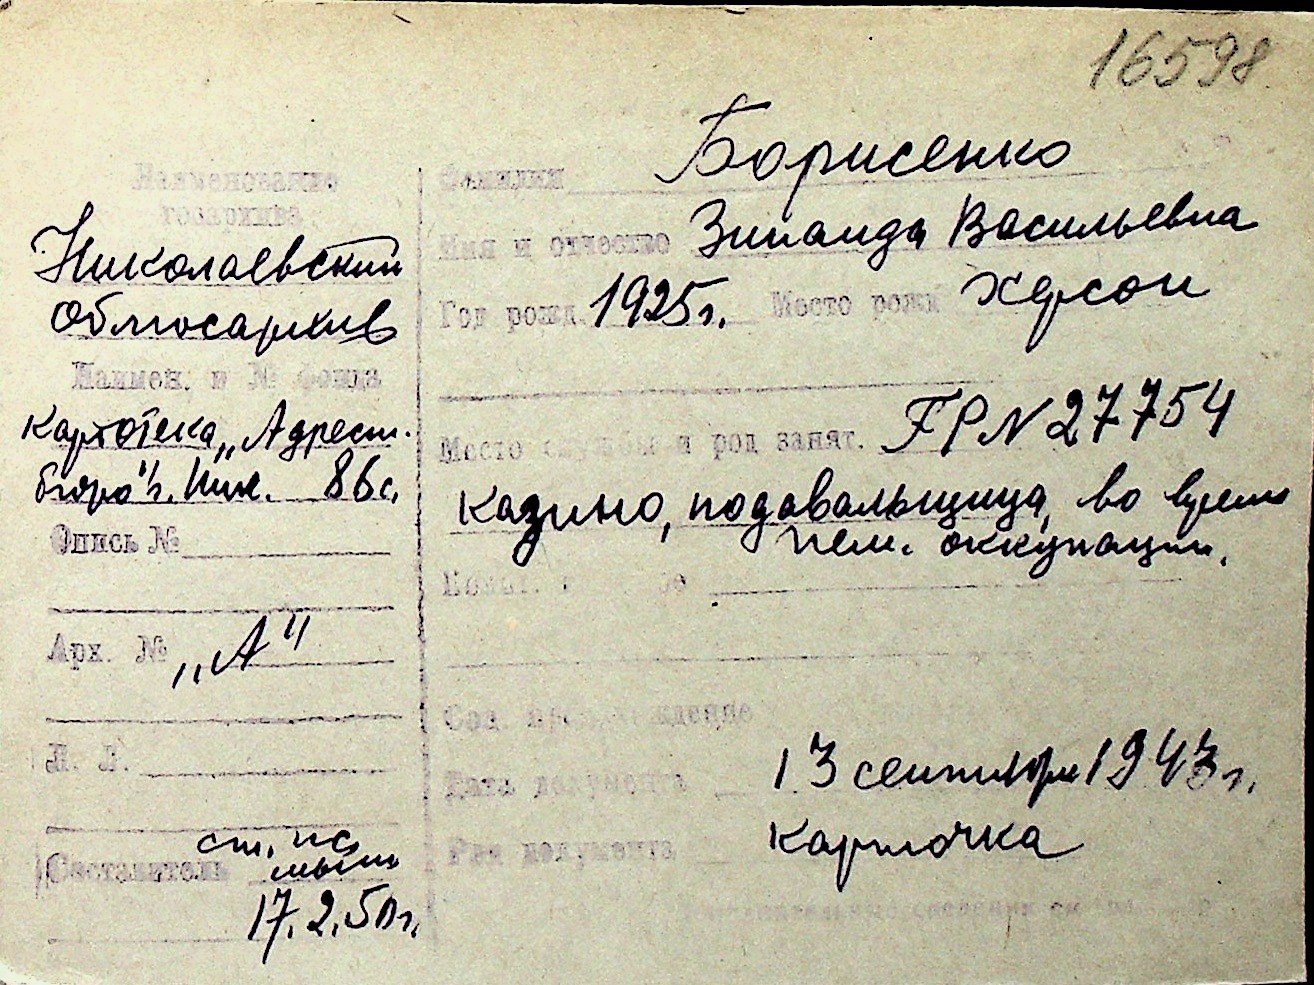 16598
Наименование
госархива
Николаевский
Облгосархив
Наимен. и № фонда
Картотека „Адресн.
бюро" г. Ник. 86с.
Опись №
Арх. № „А"
Л. Л.
Составитель
17.2.50г.
Фамилия Борисенко
Имя и отчество Зинаида Васильевна
Год рожд. 1925г. Место рожд Херсон
Место службы и род занят. FPN 27754
Казино, подавальщица, во время
нем. оккупации.
Соц. происхождение
Дата документа 13 сентября 1943г.
Род документа Карточка